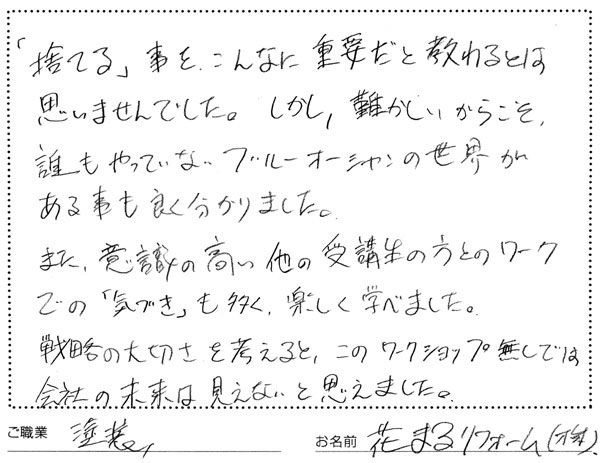 「捨てる」事を、こんなに重要だと教わるとは
思いませんでした。しかし、難かしいからこそ、
誰もやっていないブルーオーシャンの世界が
ある事も良く分かりました。
また、意識の高い他の受講生の方とのワーク
での「気づき」も多く、楽しく学べました。
戦略の大切さを考えると、このワークショップ無しでは
会社の未来は見えないと思えました。
ご職業 塗装 お名前 花まるリフォーム(株)